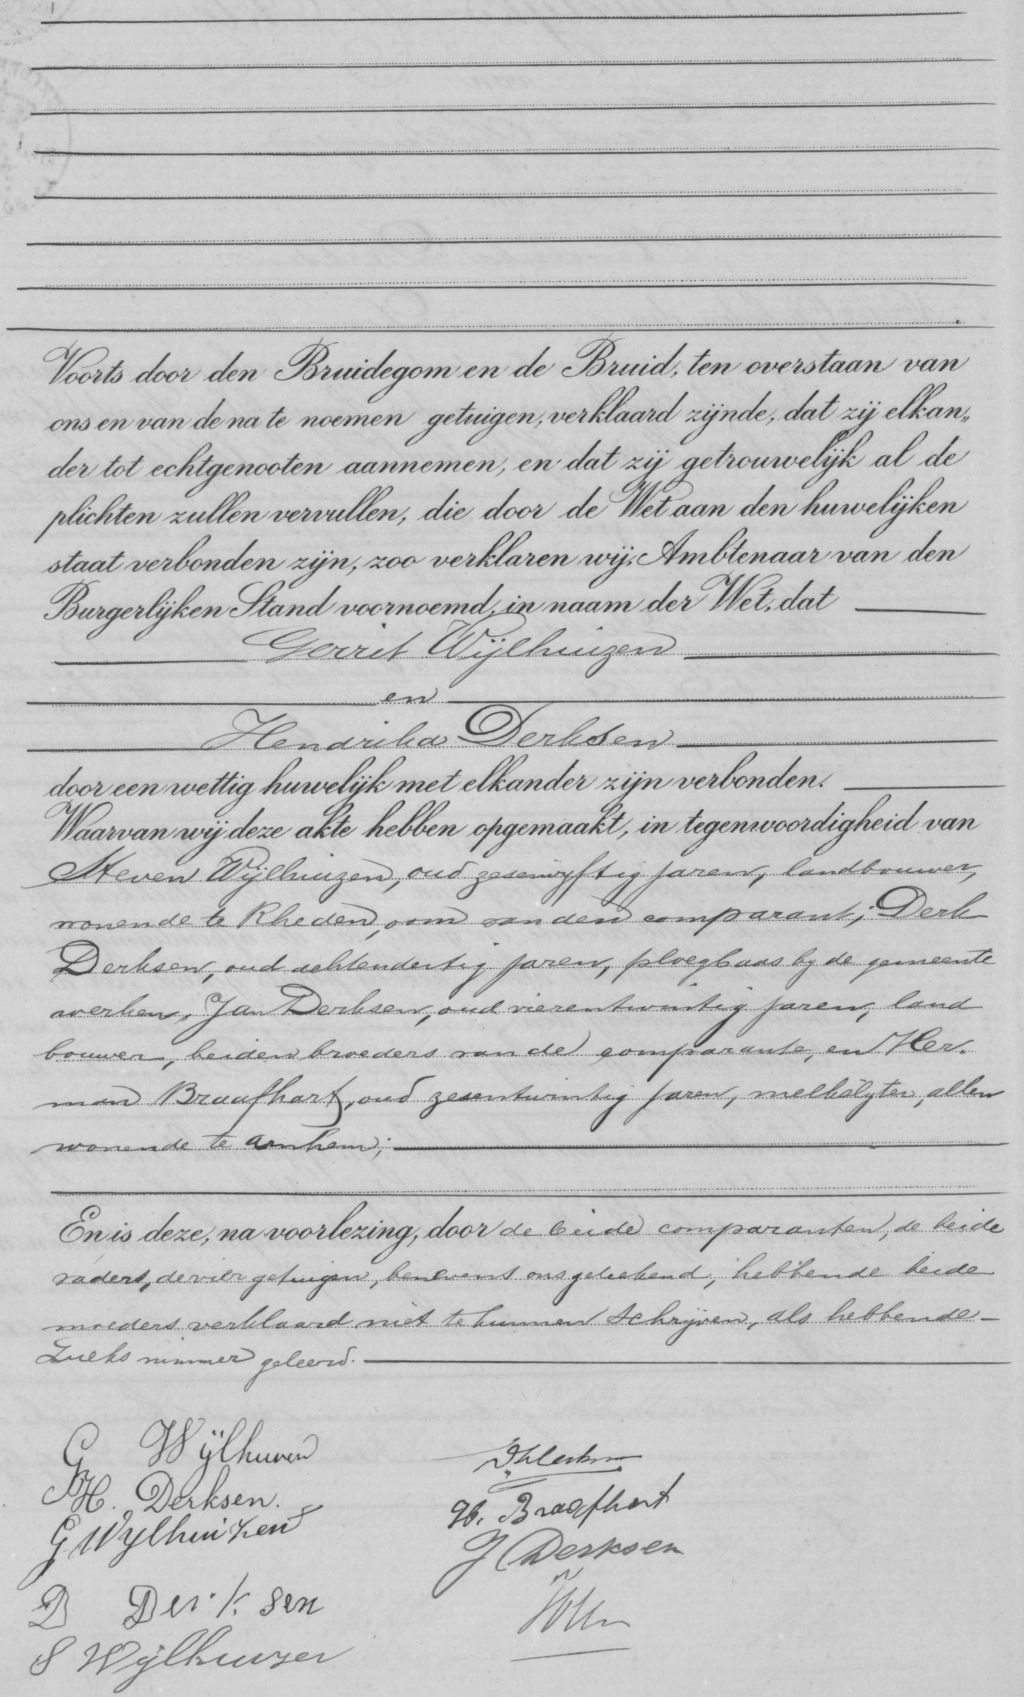 Voorts door den Bruidegom en de Bruid, ten overstaan van
ons en van de na te noemen getuigen, verklaard zijnde, dat zij elkan„
der tot echtgenooten aannemen, en dat zij getrouwelijk al de
plichten zullen vervullen, die door de Wet aan den huwelijken
staat verbonden zijn, zoo verklaren wij, Ambtenaar van den
Burgerlijken Stand voornoemd, in naam der Wet, dat
Gerrit Wijlhuizen
en
Hendrika Derksen
door een wettig huwelijk met elkander zijn verbonden.
Waarvan wij deze akte hebben opgemaakt, in tegenwoordigheid van
Steven Wijlhuizen, oud zesenvyftig jaren, landbouwer,
wonende te Rheden, oom van den comparant; Derk
Derksen, oud achtendertig jaren, ploegbaas by de gemeente
werken, Jan Derksen, oud vierentwintig jaren, land
bouwer, beiden broeders van de comparante, en Her.
man Braafhart, oud zesentwintig jaren, melkslyter, allen
wonende te Arnhem;
En is deze, na voorlezing, door de beide comparanten, de beide
vaders, de vier getuigen, benevens ons geteekend, hebbende beide
moeders verklaard niet te kunnen schrijven, als hebbende
zulks nimmer geleerd.
G Wijlhuizen
H. Derksen.
G Wylhuizen
H. Braafhart
J Derksen
D Derksen
S Wijlhuizen